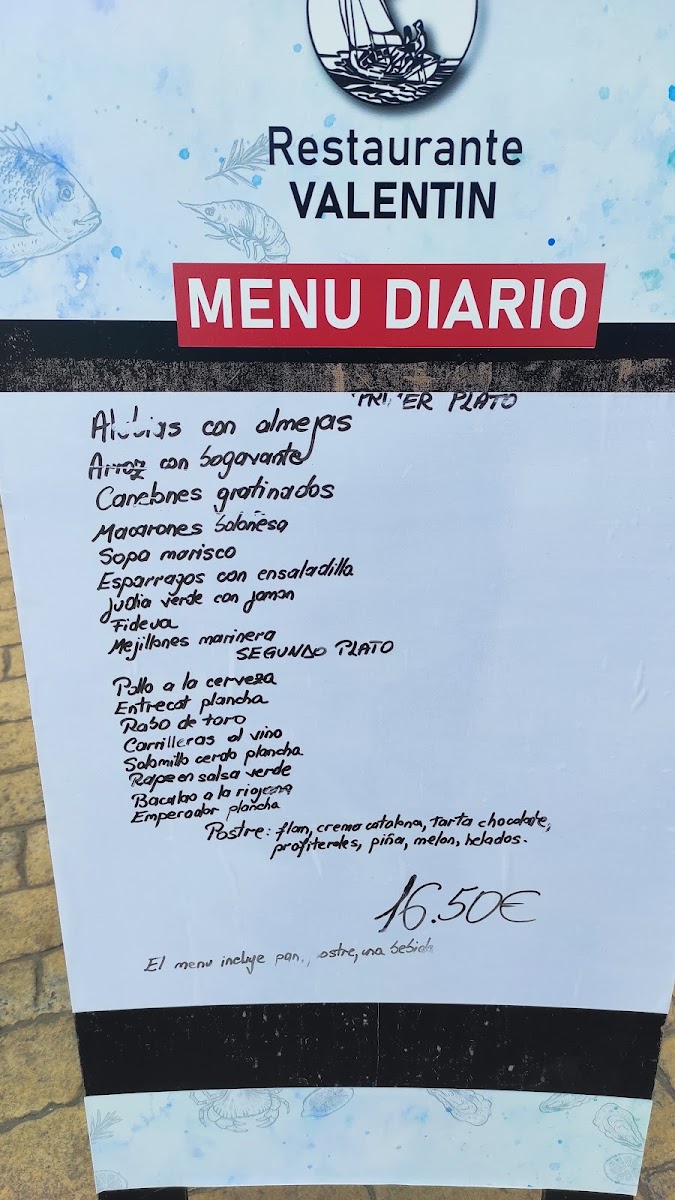 Restaurante
VALENTIN
MENU DIARIO
PRIMER PLATO
Alubias con almejas
Arroz con bogavante
Canelones gratinados
Macarones boloñesa
Sopa marisco
Esparragos con ensaladilla
Judia verde con jamon
Fideua
Mejillones marinera
SEGUNDO PLATO
Pollo a la cerveza
Entrecot plancha
Rabo de toro
Carrilleras al vino
Solomillo cerdo plancha
Rape en salsa verde
Bacalao a la riojana
Emperador plancha
Postre: flan, crema catalana, tarta chocolate,
profiteroles, piña, melon, helados.
16.50€
El menu incluye pan, postre, una bebida